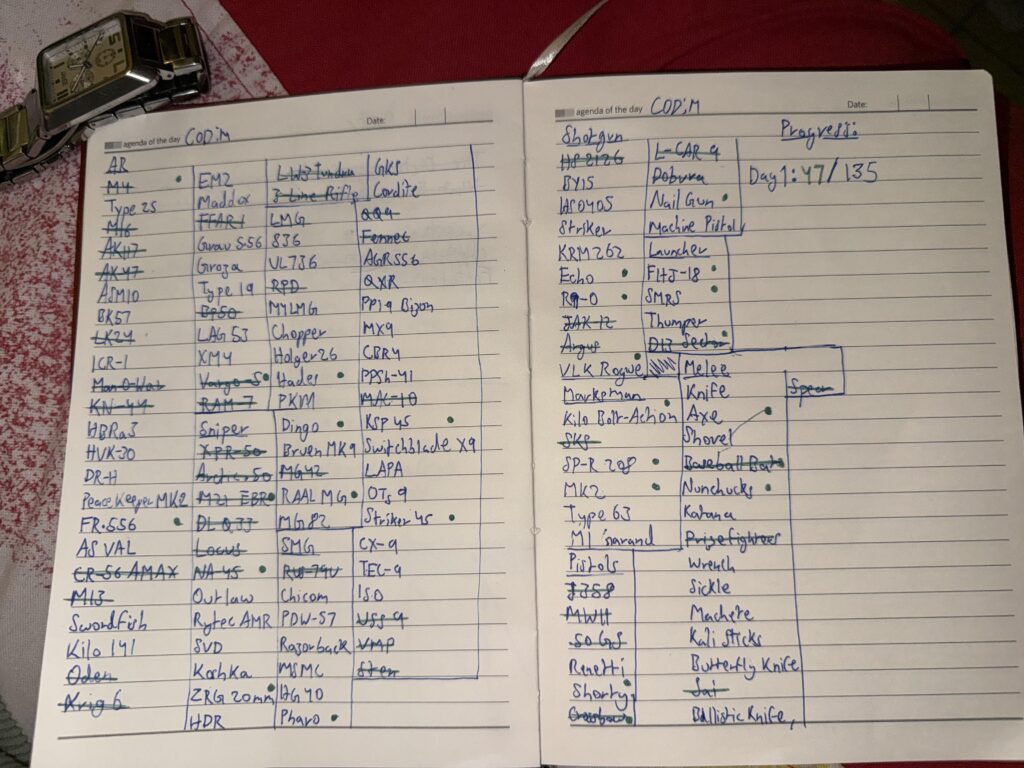 agenda of the day CODM
Date:
AR
M4
Type 25
M16
AK117
AK47
ASM10
BK57
LK24
ICR-1
Man-O-War
KN-44
HBRa3
HVK-30
DR-H
Peace Keeper MK2
FR.556
AS VAL
CR-56 AMAX
M13
Swordfish
Kilo 141
Oden
Krig 6
EM2
Maddox
FFAR 1
Grau 5.56
Groza
Type 19
BP50
LAG 53
XM4
Vargo-S
RAM-7
Sniper
XPR-50
Arctic.50
M21 EBR
DL Q33
Locus
NA-45
Outlaw
Rytec AMR
SVD
Koshka
ZRG 20mm
HDR
LW3 Tundra
3-Line Rifle
LMG
S36
UL736
RPD
M4LMG
Chopper
Holger 26
Hades
PKM
Dingo
Bruen MK9
MG42
RAAL MG
MG 82
SMG
RUS-79U
Chicom
PDW-57
Razorback
MSMC
HG 40
Pharo
GKS
Cordite
QQ9
Fennec
AGR556
QXR
PP19 Bizon
MX9
CBR4
PPSh-41
MAC-10
KSP 45
Switchblade X9
LAPA
OTs 9
Striker 45
CX-9
TEC-9
ISO
USS 9
VMP
Sten
agenda of the day CODM
Date:
Shotgun
HS2126
BY15
HS0405
Striker
KRM262
Echo
R9-0
JAK-12
Argus
VLK Rogue
Marksman
Kilo Bolt-Action
SKS
SP-R 208
MK2
Type 63
M1 Garand
Pistols
J358
MW11
.50 GS
Renetti
Shorty
Crossbow
L-CAR 9
Dobvra
Nail Gun
Machine Pistol
Launcher
FHJ-18
SMRS
Thumper
D13 Sector
Melee
Knife
Axe
Shovel
Baseball Bat
Nunchucks
Katana
Prizefighters
Wrench
Sickle
Machete
Kali Sticks
Butterfly Knife
Sai
Ballistic Knife,
Spear
Progress:
Day 1: 47/135